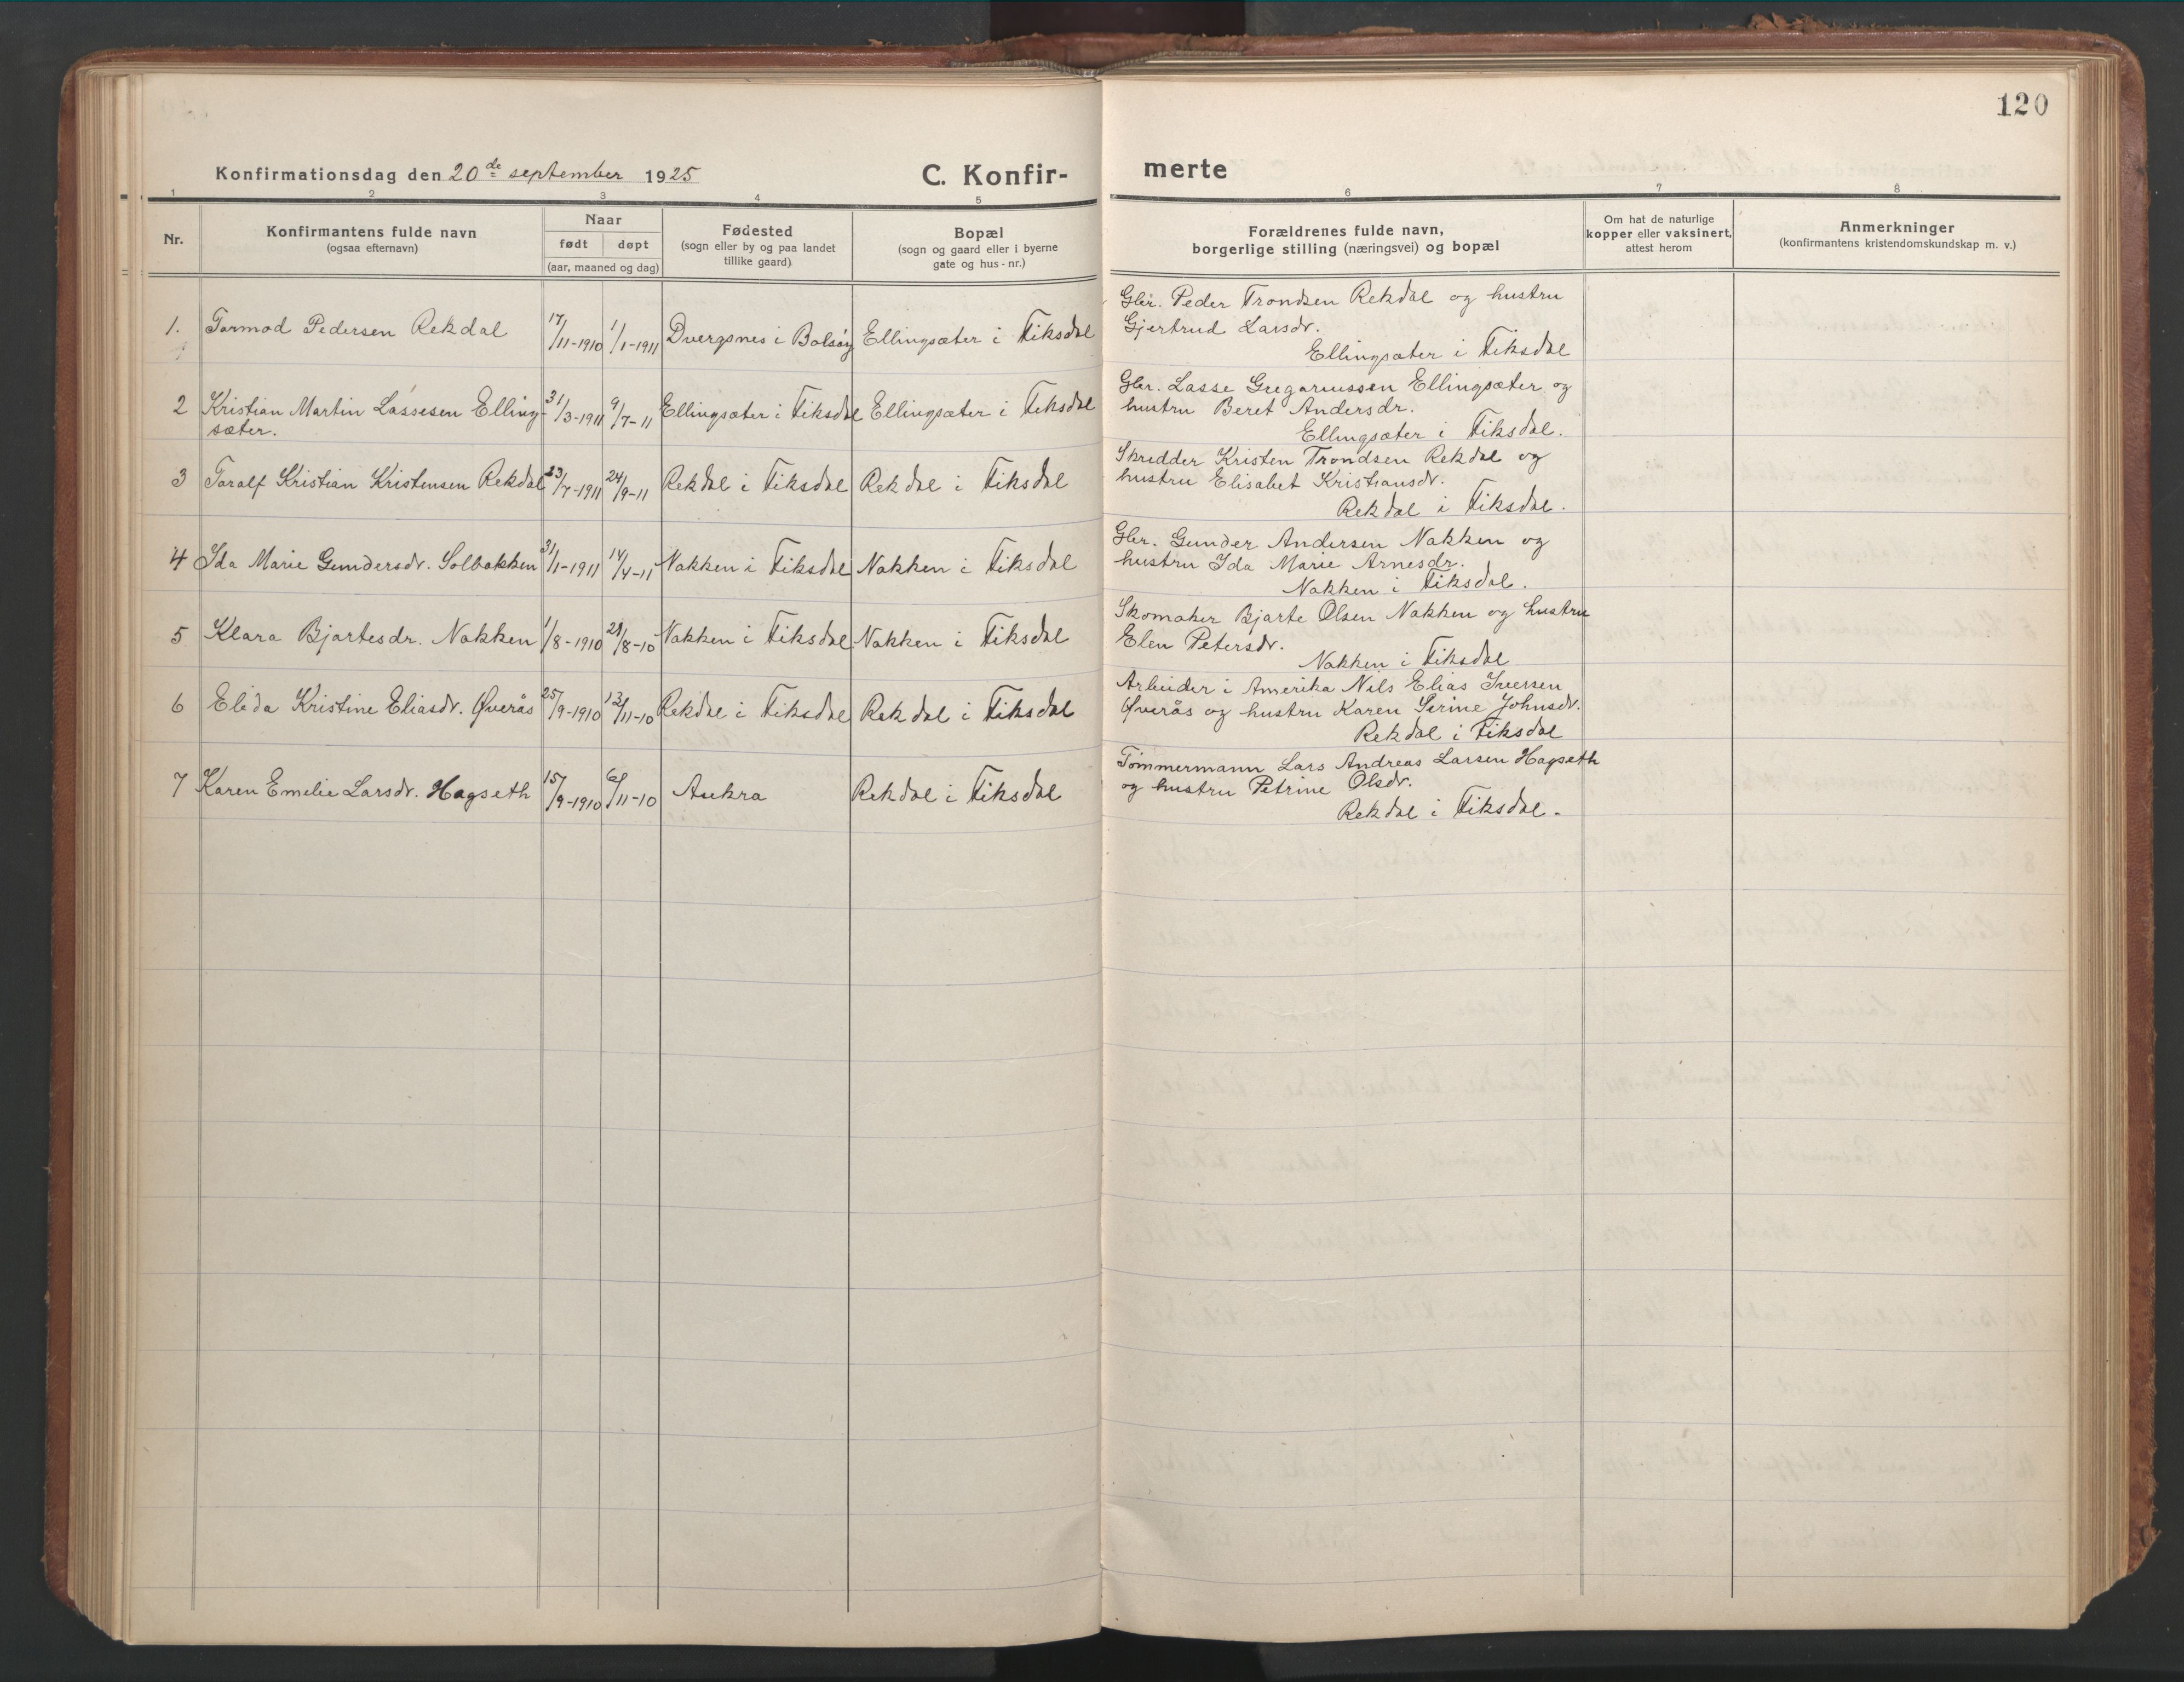 120
Konfirmationsdag den 20de september 1925
C. Konfir-
merte
1 2 3 4 5 6 7 8
Nr.
Konfirmantens fulde navn
(ogsaa efternavn)
Naar
født døpt
(aar, maaned og dag)
Fødested
(sogn eller by og paa landet
tillike gaard)
Bopæl
(sogn og gaard eller i byerne
gate og hus-nr.)
Forældrenes fulde navn,
borgerlige stilling (næringsvei) og bopæl
Om hat de naturlige
kopper eller vaksinert,
attest herom
Anmerkninger
(konfirmantens kristendomskundskap m. v.)
1. Tormod Pedersen Rekdal 17/11-1910 1/1-1911 Dvergsnes i Bolsøy Ellingsæter i Fiksdal
Gbr. Peder Trondsen Rekdal og hustru
Gjertrud Larsdr.
Ellingsæter i Fiksdal
2 Kristian Martin Lassesen Elling- 31/3-1911 9/7-11 Ellingsæter i Fiksdal Ellingsæter i Fiksdal
sæter.
Gbr. Lasse Gregoriussen Ellingsæter og
hustru Beret Andersdr.
Ellingsæter i Fiksdal.
3 Toralf Kristian Kristensen Rekdal 23/7-1911 24/9-11 Rekdal i Fiksdal Rekdal i Fiksdal
Skredder Kristen Trondsen Rekdal og
hustru Elisabet Kristiansdr.
Rekdal i Fiksdal.
4 Ida Marie Gundersdr. Solbakken 31/1-1911 14/4-11 Nakken i Fiksdal Nakken i Fiksdal
Gbr. Gunder Andersen Nakken og
hustru Ida Marie Arnesdr.
Nakken i Fiksdal.
5 Klara Bjartesdr. Nakken 1/8-1910 28/8-10 Nakken i Fiksdal Nakken i Fiksdal
Skomaker Bjarte Olsen Nakken og hustru
Elen Petersdr.
Nakken i Fiksdal
6 Elida Kristine Eliasdr. Øverås 25/9-1910 13/11-10 Rekdal i Fiksdal Rekdal i Fiksdal
Arbeider i Amerika Nils Elias Iversen
Øverås og hustru Karen Serine Johnsdr.
Rekdal i Fiksdal
7 Karen Emelie Larsdr. Hagseth 15/9-1910 6/11-10 Aukra Rekdal i Fiksdal
Tømmermann Lars Andreas Larsen Hagseth
og hustru Petrine Olsdr.
Rekdal i Fiksdal.